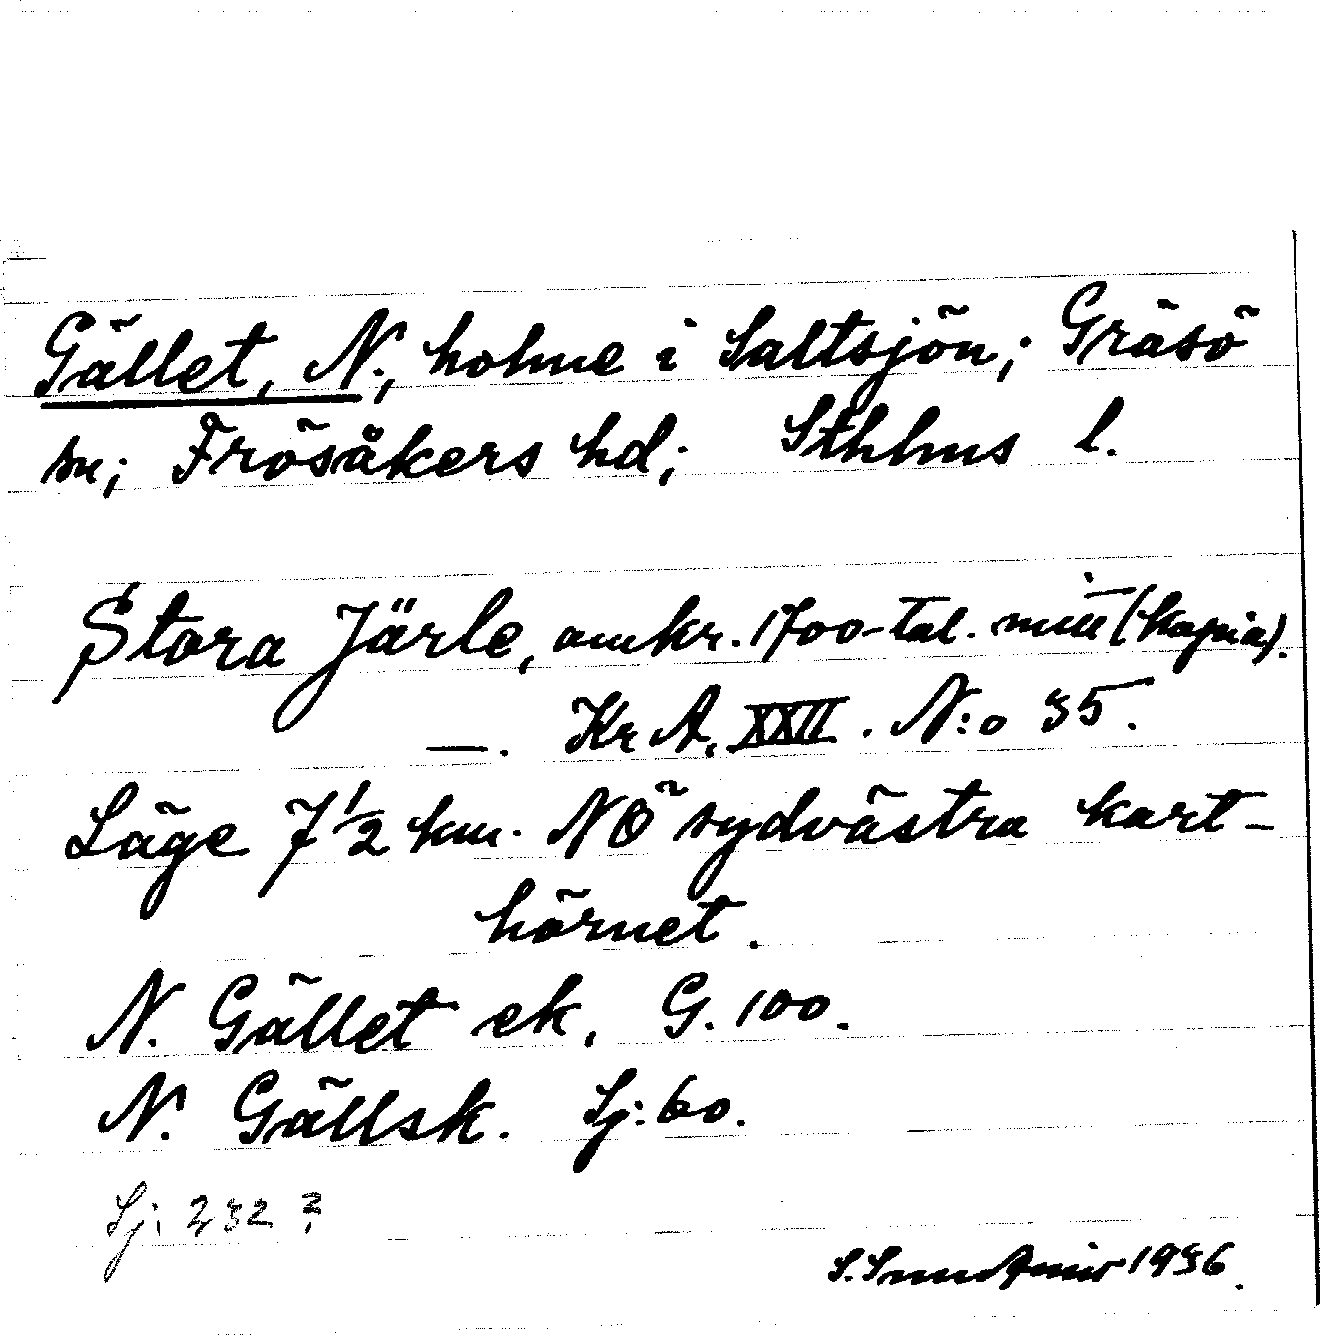 Gället, N., holme i Saltsjön; Gräsö
sn; Frösåkers hd; Sthlms l.
Stora Järle, omkr. 1700-tal. mitt (kopia).
—. Kr A, XXII. N:o 35.
Läge 7 1/2 km. NÖ sydvästra kart-
hörnet.
N. Gället ek. G. 100.
N. Gällsk. Sj: 60.
Sj: 232 ?
S. 1936.